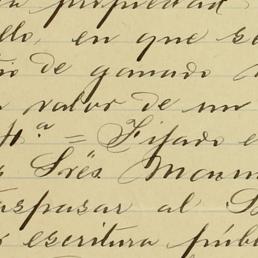 propiedad
llo, en que se
de ganado
valor de un
4ª = Fijado e
Sres Manu
aspasar al
escritura públ